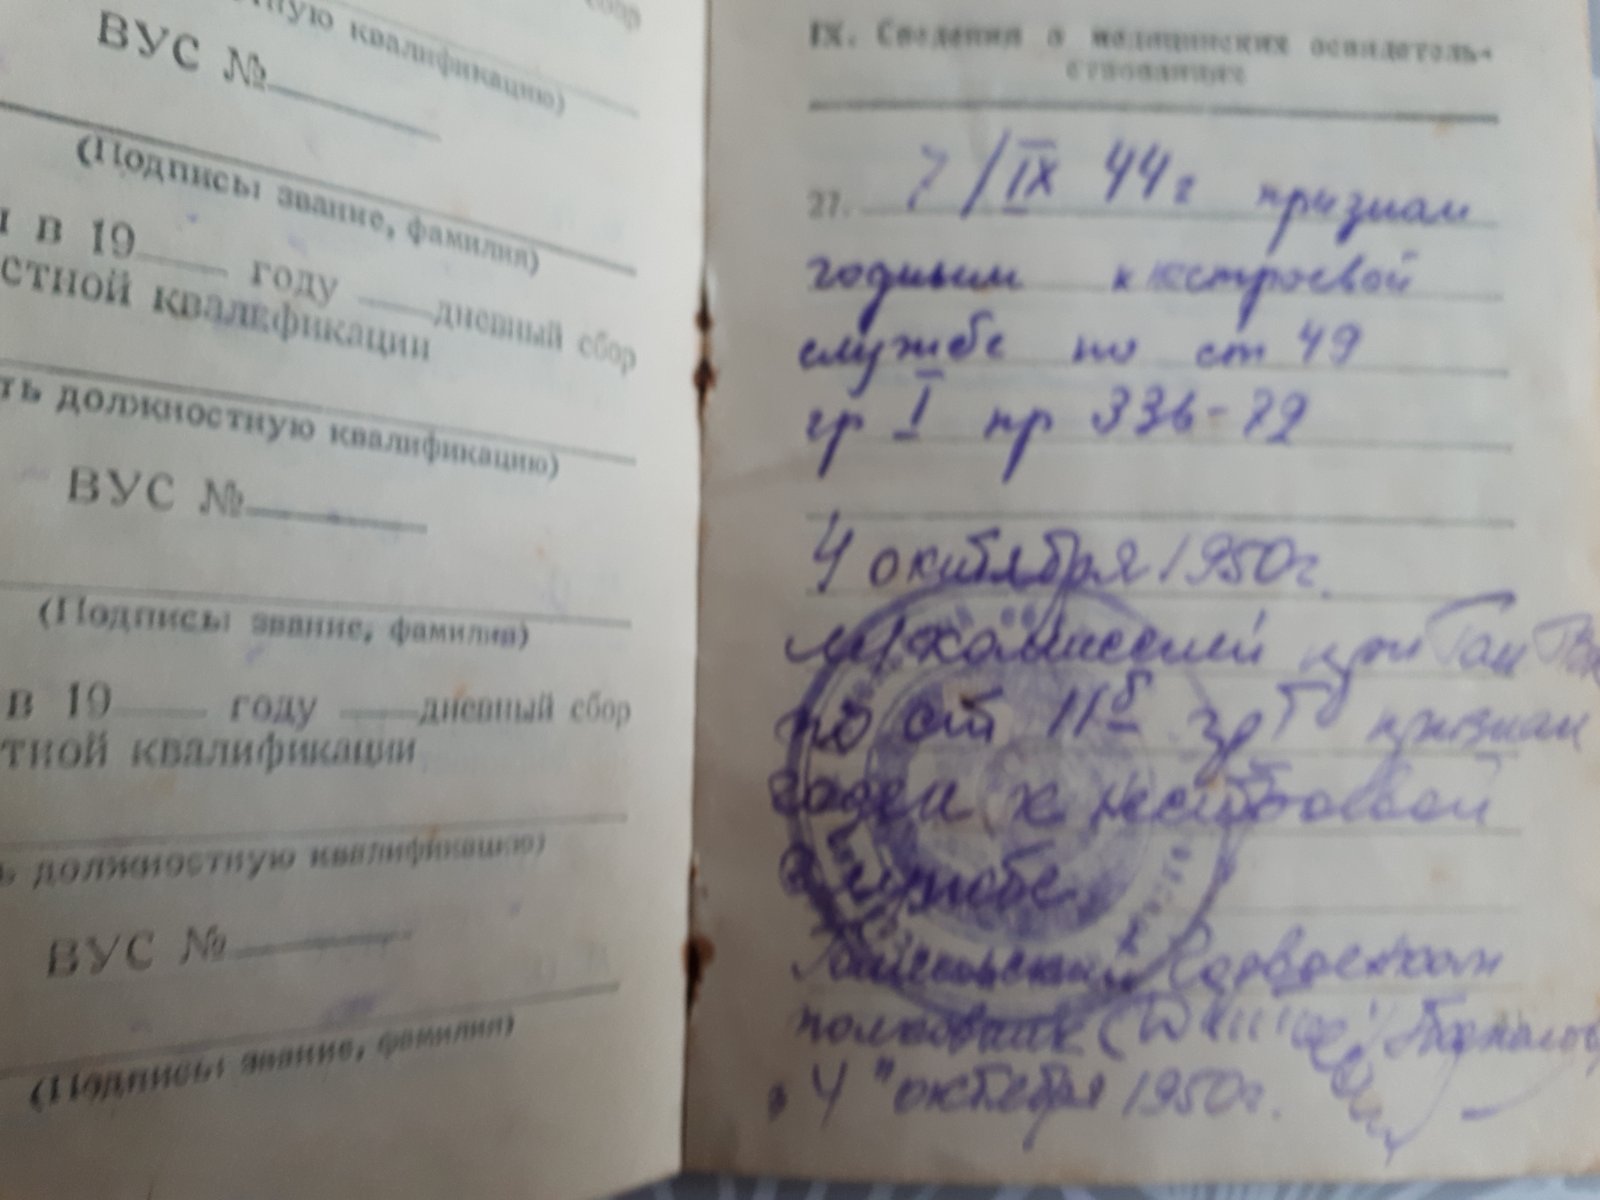 сбор
ную квалификацию)
ВУС №
(Подписы звание, фамилия)
в 19 году дневный сбор
стной квалификации
ть должностную квалификацию)
ВУС №
(Подписы звание, фамилия)
в 19 году дневный сбор
тной квалификации
ь должностную квалификацию)
ВУС №
(Подписы звание, фамилия)
IX. Сведения о медицинских освидетель-
ствованиях
27. 7/IX 44г признан
годным к нестроевой
службе по ст 49
гр I пр 336-42
4 октября 1950г.
комиссией при
по ст 11б гр I признан
годен к нестроевой
службе
Горвоенком
полковник
"4" октября 1950г.